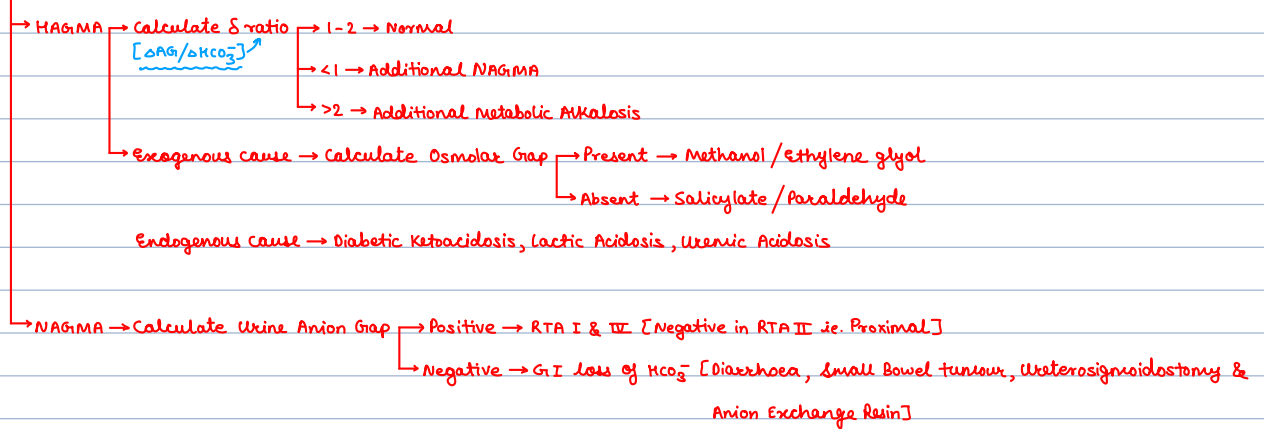 → HAGMA → Calculate δ ratio → 1-2 → Normal
[ΔAG/ΔHCO₃⁻]
→ <1 → Additional NAGMA
→ >2 → Additional Metabolic Alkalosis
→ Exogenous cause → Calculate Osmolar Gap → Present → Methanol / Ethylene glyol
→ Absent → Salicylate / Paraldehyde
Endogenous cause → Diabetic Ketoacidosis, Lactic Acidosis, Uremic Acidosis
→ NAGMA → Calculate Urine Anion Gap → Positive → RTA I & IV [Negative in RTA II ie. Proximal]
→ Negative → GI loss of HCO₃⁻ [Diarrhoea, Small Bowel tumour, Ureterosigmoidostomy &
Anion Exchange Resin]